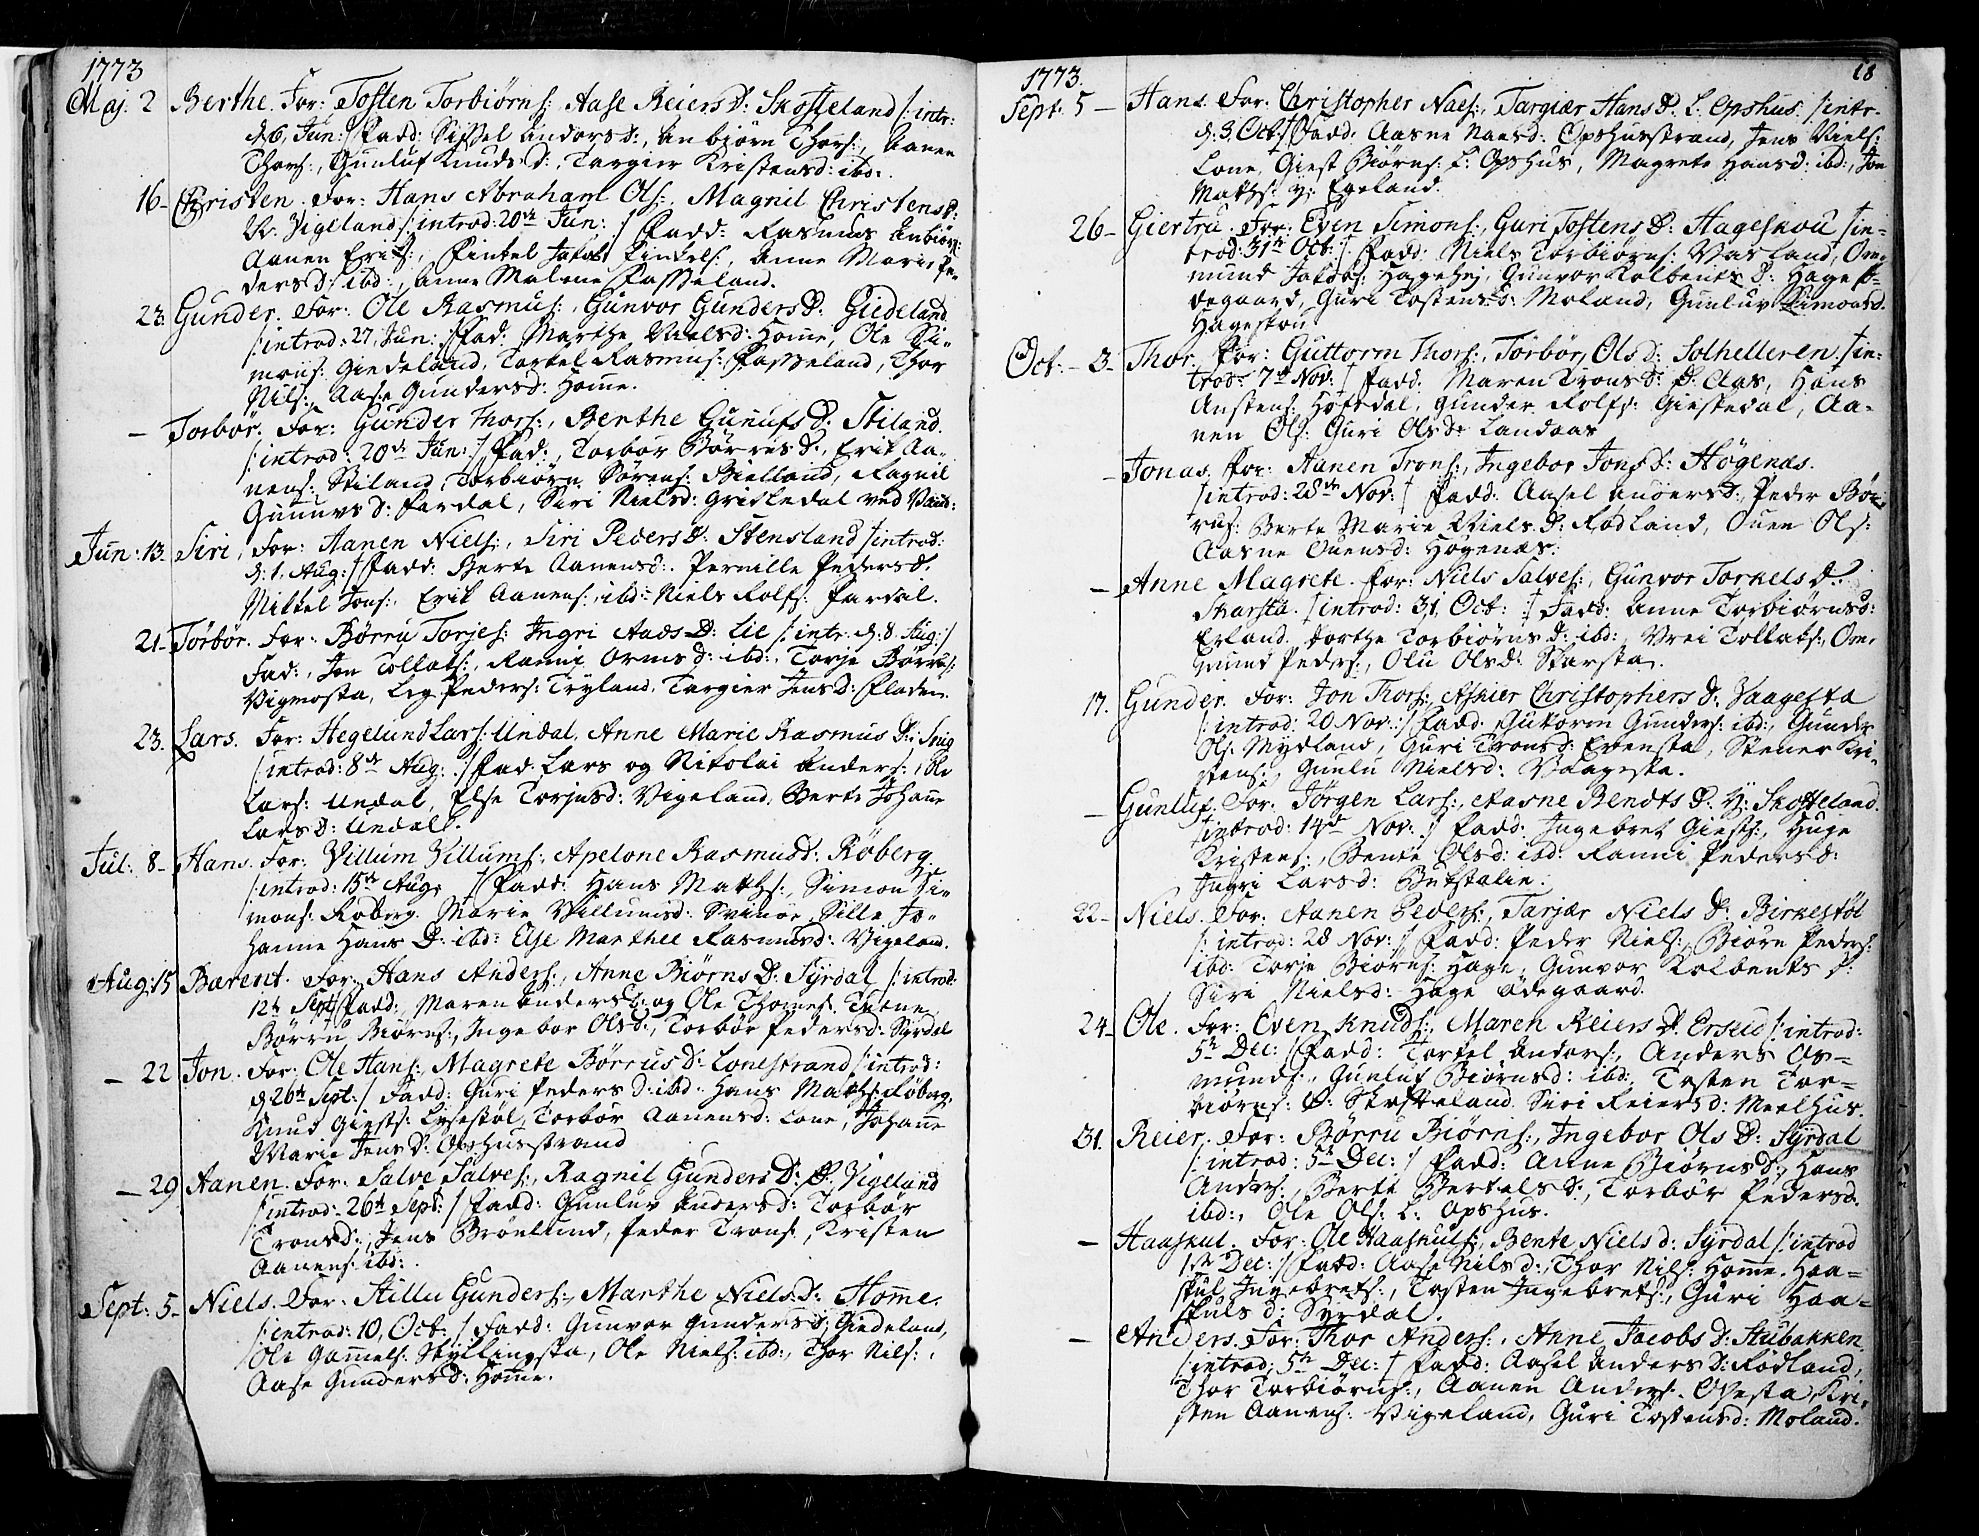 1773
Maj. 2 Berthe. For: Tosten Torbiörns:, Aase Reiers D: Skofteland /: intr:
d. 6, Jun: :/ Fadd: Sissel Anders d:, Anbiörn Thors:, Aanen
Thors:, Gunluf Knuds d:, Targier Kristensd: ibd:
16- Christen. For: Hans Abraham Ols:, Magnil Christensd:
V. Vigeland /: introd: 20de Jun: :/ Fadd: Rasmus Anbiörns:
Aanen Eriks:, Fintel Jakob Fintels:, Anne Marie Pe-
ders D: ibd:, Anne Malene Fasseland.
23. Gunder. For: Ole Rasmus:, Gunvor Gunders D: Giedeland
/: introd: 27, Jun: :/ Fad: Marthe Nielsd: Home, Ole Si-
mons: Giedeland, Torkel Rasmus: Fasseland, Thor
Nils:, Aase Gundersd: Home.
- Torbör. For: Gunder Thors:, Berthe Gunufs D: Stiland.
/: introd: 20de Jun: :/ Fad:, Torbör Börres D:, Erik Aa-
nens: Stiland, Torbiörn Sörens: Bielland, Ragnil
Gunuvs D: Fardal, Siri Nielsd:
Jun: 13. Siri, For: Aanen Niels:, Siri Peders D: Stensland /: introd:
d: 1. Aug: :/ Fadd: Berte Aanensd: Pernille Pedersd.
Mikkel Jons:, Erik Aanens: ibd: Niels Rolfs: Fardal.
21- Torbör. For: Börru Torjes: Ingri Aads D: Lie /: intr: d: 8 Aug: :/
Fad:, Jon Tollaks:, Ranni Ormsd: ibd:, Torje Börrus:
Vigmosta, Leg Peders: Tryland, Targier Jens d: Fladen.
23. Lars. For: Hegelund Lars: Undal, Anne Marie Rasmus D:, Snig
/: introd: 8de Aug: :/ Fad: Lars og Nikolai Anders:, Ole
Lars: Undal, Else Torjusd: Vigeland, Berte Johanne
Lars D: Undall.
Jul: 8- Hans. For: Villum Villums:, Apelone Rasmusd: Röberg.
/: introd: 15de Aug: :/ Fadd: Hans Mathis:, Simon Si-
mons: Röberg. Marie Villumsd: Svinör, Sille Jo-
hanne Hans D: ibd: Else Marthee Rasmusd: Vigeland.
Aug: 15 Barent. For: Hans Anders:, Anne Biörns D: Syrdal /: introd:
12te Sept: :/ Fadd:, Maren Anders D: og Ole Thomes. Tutne
Börru Biörns:, Ingebor Olsd:, Torbör Pedersd: Syrdal
- 22 Jon. For: Ole Hans:, Magrete Börrus D: Lonestrand /: introd:
d 26de Sept: :/ Fadd: Guri Peders d: ibd: Hans Mathis: Röberg,
Knud Giests: Lyrestöl, Torbör Aanensd: Lone, Johanne
Marie Jens D: Opshusstrand
- 29 Aanen. For: Salve Salves:, Ragnil Gunders D: Ö. Vigeland
/: introd: 26de Sept: :/ Fadd: Gunluv Andersd: Torbör
Tronsd:, Jens Brönlund, Peder Trons:, Kristen
Aanens: ibd:
Sept: 5- Niels. For: Stillu Gunders:, Marthe Niels D: Home.
/: introd: 10, Oct: :/ Fadd: Gunvor Gundersd: Giedeland,
Ole Gammels: Skyllingsta, Ole Niels: ibd:, Thor Nils:,
Aase Gunders d: Home.
1773. 18
Sept: 5 - Hans. For: Christopher Naes:, Targiær Hans D: L. Opshus. /: intr.
d. 3. Oct: :/ Fadd. Aasne Naesd: Opshusstrand, Jens Niels:
Lone, Giest Biörns: L: Opshus, Magrete Hansd: ibd:, Jon
Mathis: Y: Egeland.
26- Giertru. For: Even Simons:, Guri Tostens D: Hageskou /: in-
trod: 31te Oct: :/ Fadd: Niels Torbiörns: Varland, Om-
mund Jakobs: Hagehej, Gunvor Kolbents D: Hage ö-
degaard, Guri Tostensd: Moland, Gunluv Simonsd:
Hageskou
Oct: - 3- Thor. For: Guttorm Thors:, Torbör Olsd: Solhelleren /: in-
trod: 7de Nov: :/ Fadd. Maren Tronsd: D: Aas, Hans
Anstens: Hofsdal, Gunder Rolfs: Giestedal, Aa-
nen Ols: Guri Olsd: Landaas
- Jonas. For: Aanen Trons:, Ingebor Jons D: Högenæs.
/: introd: 28de Nov: :/ Fadd: Aasel Anders D:, Peder Bör-
rus: Berte Marie Niels D: Rödland, Ouen Ols:
Aasne Ouensd: Högenæs:
- Anne Magrete. For: Niels Salves:, Gunvor Torkels D.
Skarsta. /: introd: 31, Oct: :/ Fadd: Anne Torbiörnsd:
Erland. Dorthe Torbiörnsd: ibd:, Vrei Tollaks:, Om-
mund Peders:, Olu Olsd: Skarsta.
17. Gunder. For: Jon Thors:, Askier Christophers D: Vaagesta
/: introd: 20 Nov: :/ Fadd: Gutorm Gunders: ibd:, Gunder
Ols: Mydland, Guri Tronsd: Evensta, Stener Kri-
stens:, Gunlu Nielsd: Vaagesta.
- Gunluf. For: Jörgen Lars:, Aasne Bendts D. Y: Skofteland.
/: introd: 14de Nov: :/ Fadd: Ingebret Giests:, Huge
Kristens:, Bente Olsd: ibd: Ranni Pedersd:
Ingri Larsd: Bukstalie.
22- Niels. For: Aanen Peders:, Tarjær Niels D: Birkestöl
/: introd: 28 Nov: :/ Fadd: Peder Niels:, Biörn Peders:
ibd: Torje Biörns: Hage, Gunvor Kolbents D:
Siri Nielsd: Hage ödegaard.
24- Ole. For: Even Knuds:, Maren Reiers D. Erseid /: introd:
5te Dec: :/ Fadd: Torkel Anders:, Anders Os-
munds:, Gunluf Biörnsd: ibd:, Tosten Tor-
biörns: Ö: Skofteland. Siri Reiersd: Meelhus.
31. Reier. For: Börru Biörns:, Ingebor Ols D: Syrdal
/: introd: 5te Dec: :/ Fadd: Anne Biörns d:, Hans
Anders:, Berte Bertels d:, Torbör Pedersd.
ibd:, Ole Ols: L: Opshus.
- Haaskul. For: Ole Haaskuls:, Bente Niels d: Syrdal /: introd
Dec: :/ Fadd: Aase Nilsd:, Thor Nils: Home. Haa-
skul Ingebrets:, Tosten Ingebrets:, Guri Haa-
skuls d: Syrdal.
- Anders. For: Thor Anders:, Anne Jacobs D: Stubakken.
/: introd: 5te Dec: :/ Fadd: Aasel Anders D: Rödland,
Thor Torbiörns:, Aanen Anders: Ovesta, Kri-
sten Aanens: Vigeland, Guri Tostensd: Moland.